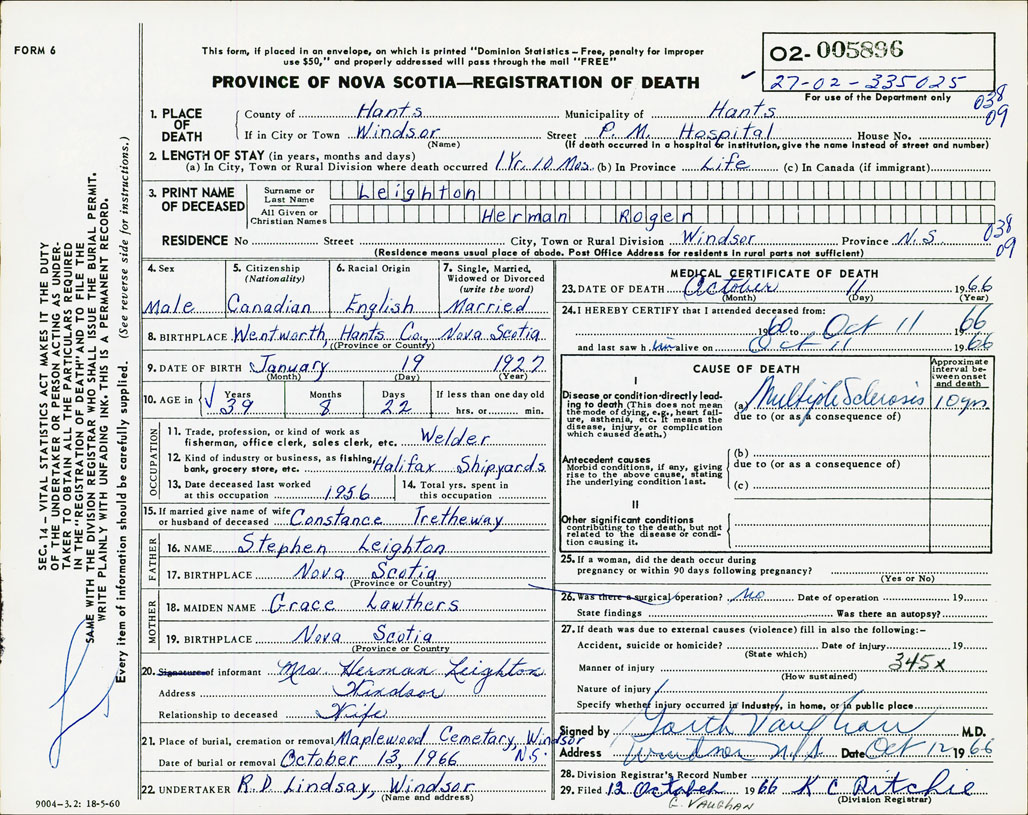 FORM 6
This form, if placed in an envelope, on which is printed "Dominion Statistics – Free, penalty for improper
use $50," and properly addressed will pass through the mail "FREE"
PROVINCE OF NOVA SCOTIA—REGISTRATION OF DEATH
O2- 005896
27-02-335025
For use of the Department only
038
09
1. PLACE OF DEATH
County of Hants Municipality of Hants
If in City or Town Windsor Street P. M. Hospital House No.
(Name) (If death occurred in a hospital or institution, give the name instead of street and number)
2. LENGTH OF STAY (in years, months and days)
(a) In City, Town or Rural Division where death occurred 1 Yr. 10 Mos. (b) In Province Life (c) In Canada (if immigrant)
3. PRINT NAME OF DECEASED
Surname or Last Name Leighton
All Given or Christian Names Herman Roger
038
09
RESIDENCE No Street City, Town or Rural Division Windsor Province N.S.
(Residence means usual place of abode. Post Office Address for residents in rural parts not sufficient)
4. Sex Male
5. Citizenship (Nationality) Canadian
6. Racial Origin English
7. Single, Married, Widowed or Divorced (write the word) Married
8. BIRTHPLACE Wentworth, Hants Co., Nova Scotia
(Province or Country)
9. DATE OF BIRTH January 19 1927
(Month) (Day) (Year)
10. AGE in Years 39 Months 8 Days 22 If less than one day old
hrs. or min.
OCCUPATION
11. Trade, profession, or kind of work as
fisherman, office clerk, sales clerk, etc. Welder
12. Kind of industry or business, as fishing,
bank, grocery store, etc. Halifax Shipyards
13. Date deceased last worked
at this occupation 1956
14. Total yrs. spent in
this occupation
15. If married give name of wife
or husband of deceased Constance Tretheway
FATHER
16. NAME Stephen Leighton
17. BIRTHPLACE Nova Scotia
(Province or Country)
MOTHER
18. MAIDEN NAME Grace Lawthers
19. BIRTHPLACE Nova Scotia
(Province or Country)
20. Signature of informant Mrs Herman Leighton
Address Windsor
Relationship to deceased Wife
21. Place of burial, cremation or removal Maplewood Cemetary, Windsor
N.S.
Date of burial or removal October 13, 1966
22. UNDERTAKER R.D. Lindsay, Windsor
(Name and address)
MEDICAL CERTIFICATE OF DEATH
23. DATE OF DEATH October 11 1966
(Month) (Day) (Year)
24. I HEREBY CERTIFY that I attended deceased from:
1960 to Oct 11 1966
and last saw him alive on Oct 11 1966
CAUSE OF DEATH
Approximate interval between onset and death
I
Disease or condition directly leading to death (This does not mean
the mode of dying, e.g., heart failure, asthenia, etc. It means the
disease, injury, or complication
which caused death.)
(a) Multiple Sclerosis 10 yrs.
due to (or as a consequence of)
Antecedent causes
Morbid conditions, if any, giving
rise to the above cause, stating
the underlying condition last.
(b)
due to (or as a consequence of)
(c)
II
Other significant conditions
contributing to the death, but not
related to the disease or condition causing it.
25. If a woman, did the death occur during
pregnancy or within 90 days following pregnancy?
(Yes or No)
26. Was there a surgical operation? no Date of operation 19
State findings Was there an autopsy?
27. If death was due to external causes (violence) fill in also the following:–
Accident, suicide or homicide? Date of injury 19
(State which)
345x
Manner of injury
(How sustained)
Nature of injury
Specify whether injury occurred in industry, in home, or in public place
Signed by Garth Vaughan M.D.
Address Windsor N.S Date Oct 12 1966
28. Division Registrar's Record Number
29. Filed 12 October 1966 K C Ritchie
(Division Registrar)
G. VAUGHAN
9004–3.2: 18-5-60
SEC. 14 – VITAL STATISTICS ACT MAKES IT THE DUTY
OF THE UNDERTAKER OR PERSON ACTING AS UNDER-
TAKER TO OBTAIN ALL THE PARTICULARS REQUIRED
IN THE "REGISTRATION OF DEATH" AND TO FILE THE
SAME WITH THE DIVISION REGISTRAR WHO SHALL ISSUE THE BURIAL PERMIT.
WRITE PLAINLY WITH UNFADING INK. THIS IS A PERMANENT RECORD.
Every item of information should be carefully supplied. (See reverse side for instructions.)